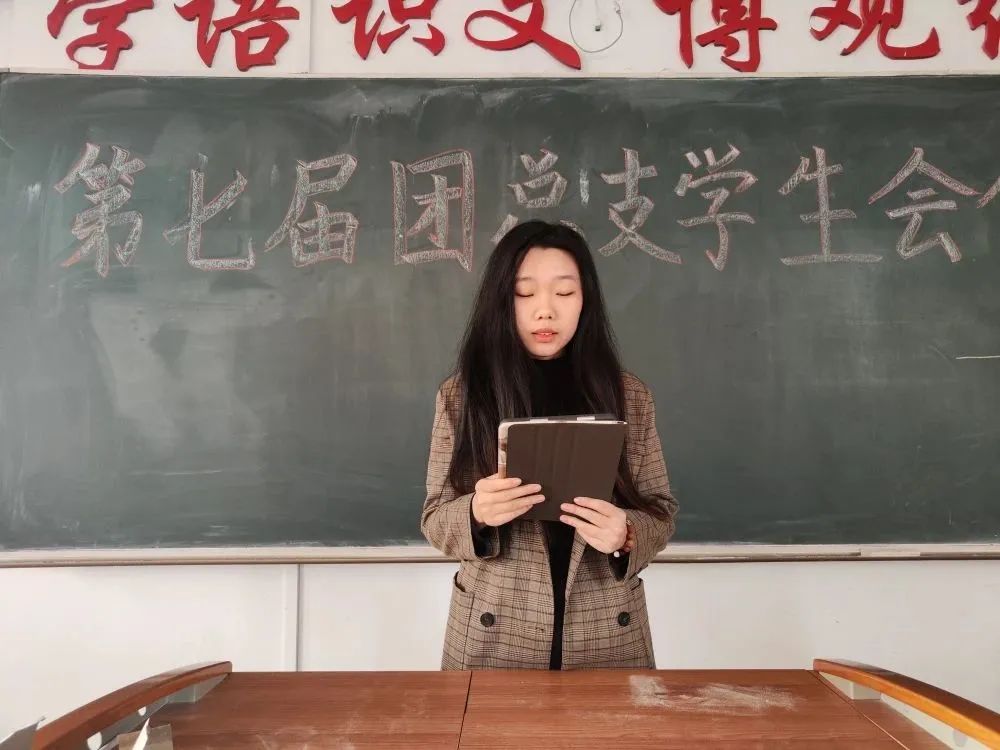 学语识文 博观
第七届团总支学生会